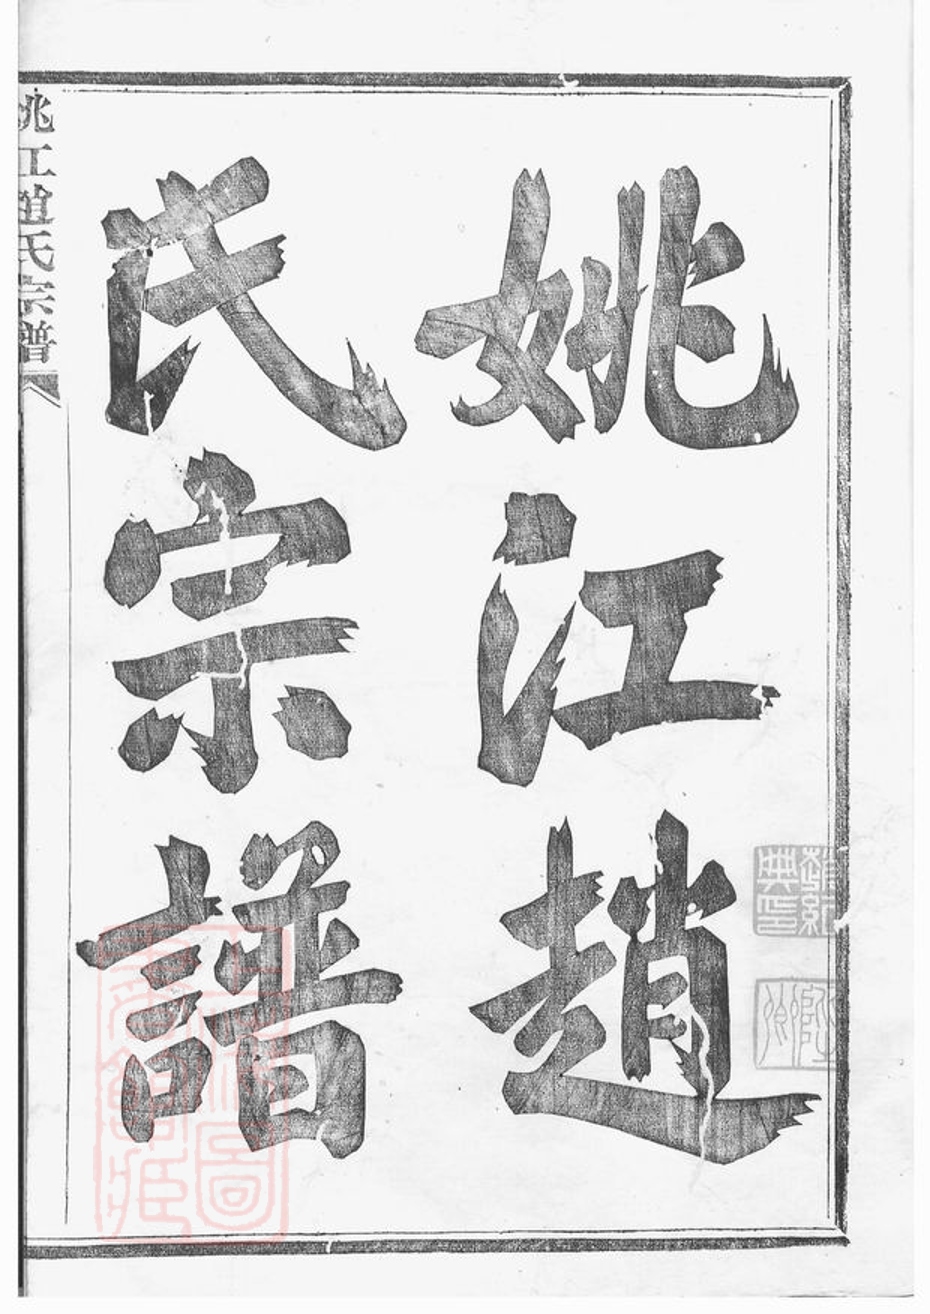 姚江趙
氏宗譜
姚江趙氏宗譜